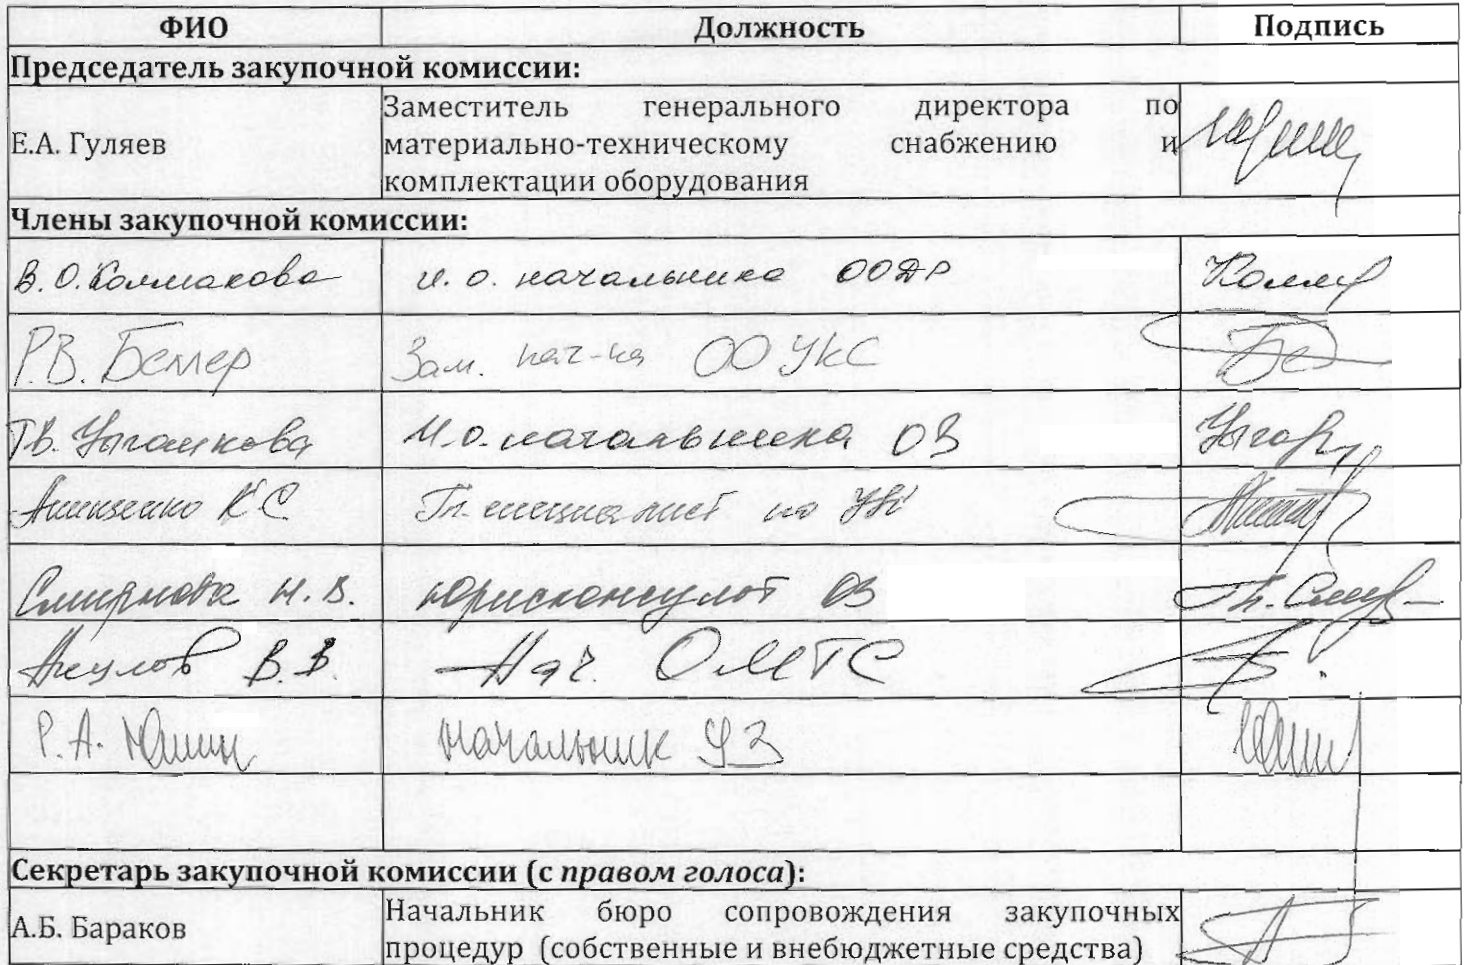 ФИО Должность Подпись
Председатель закупочной комиссии:
Е.А. Гуляев
Заместитель генерального директора по
материально-техническому снабжению и
комплектации оборудования
Члены закупочной комиссии:
В.О. Колмакова и.о. начальника ООДР
Р.В. Беллер Зам. нач-ка ОО УКС
Т.В. И.о. начальника ОЗ
Анищенко К С Гл. специалист по
Смирнова Н.В. юрисконсульт ОЗ
Акулов В.В. Нач. ОМТС
Р.А. Юшин начальник УЗ
Секретарь закупочной комиссии (с правом голоса):
А.Б. Бараков
Начальник бюро сопровождения закупочных
процедур (собственные и внебюджетные средства)